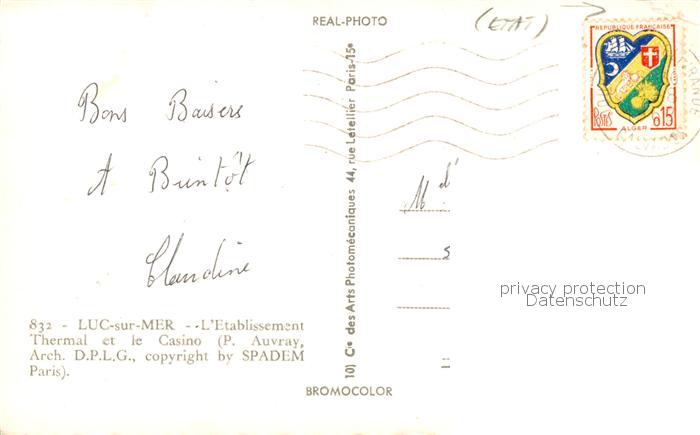 REAL-PHOTO
(ETAT)
REPUBLIQUE FRANÇAISE
POSTES
0,15
ALGER
Bons Baisers
A Bientôt
Claudine
M
privacy protection
Datenschutz
10) Cie des Arts Photomécaniques 44, rue Letellier Paris-15e
832 - LUC-sur-MER -- L'Etablissement
Thermal et le Casino (P. Auvray,
Arch. D.P.L.G., copyright by SPADEM
Paris).
BROMOCOLOR